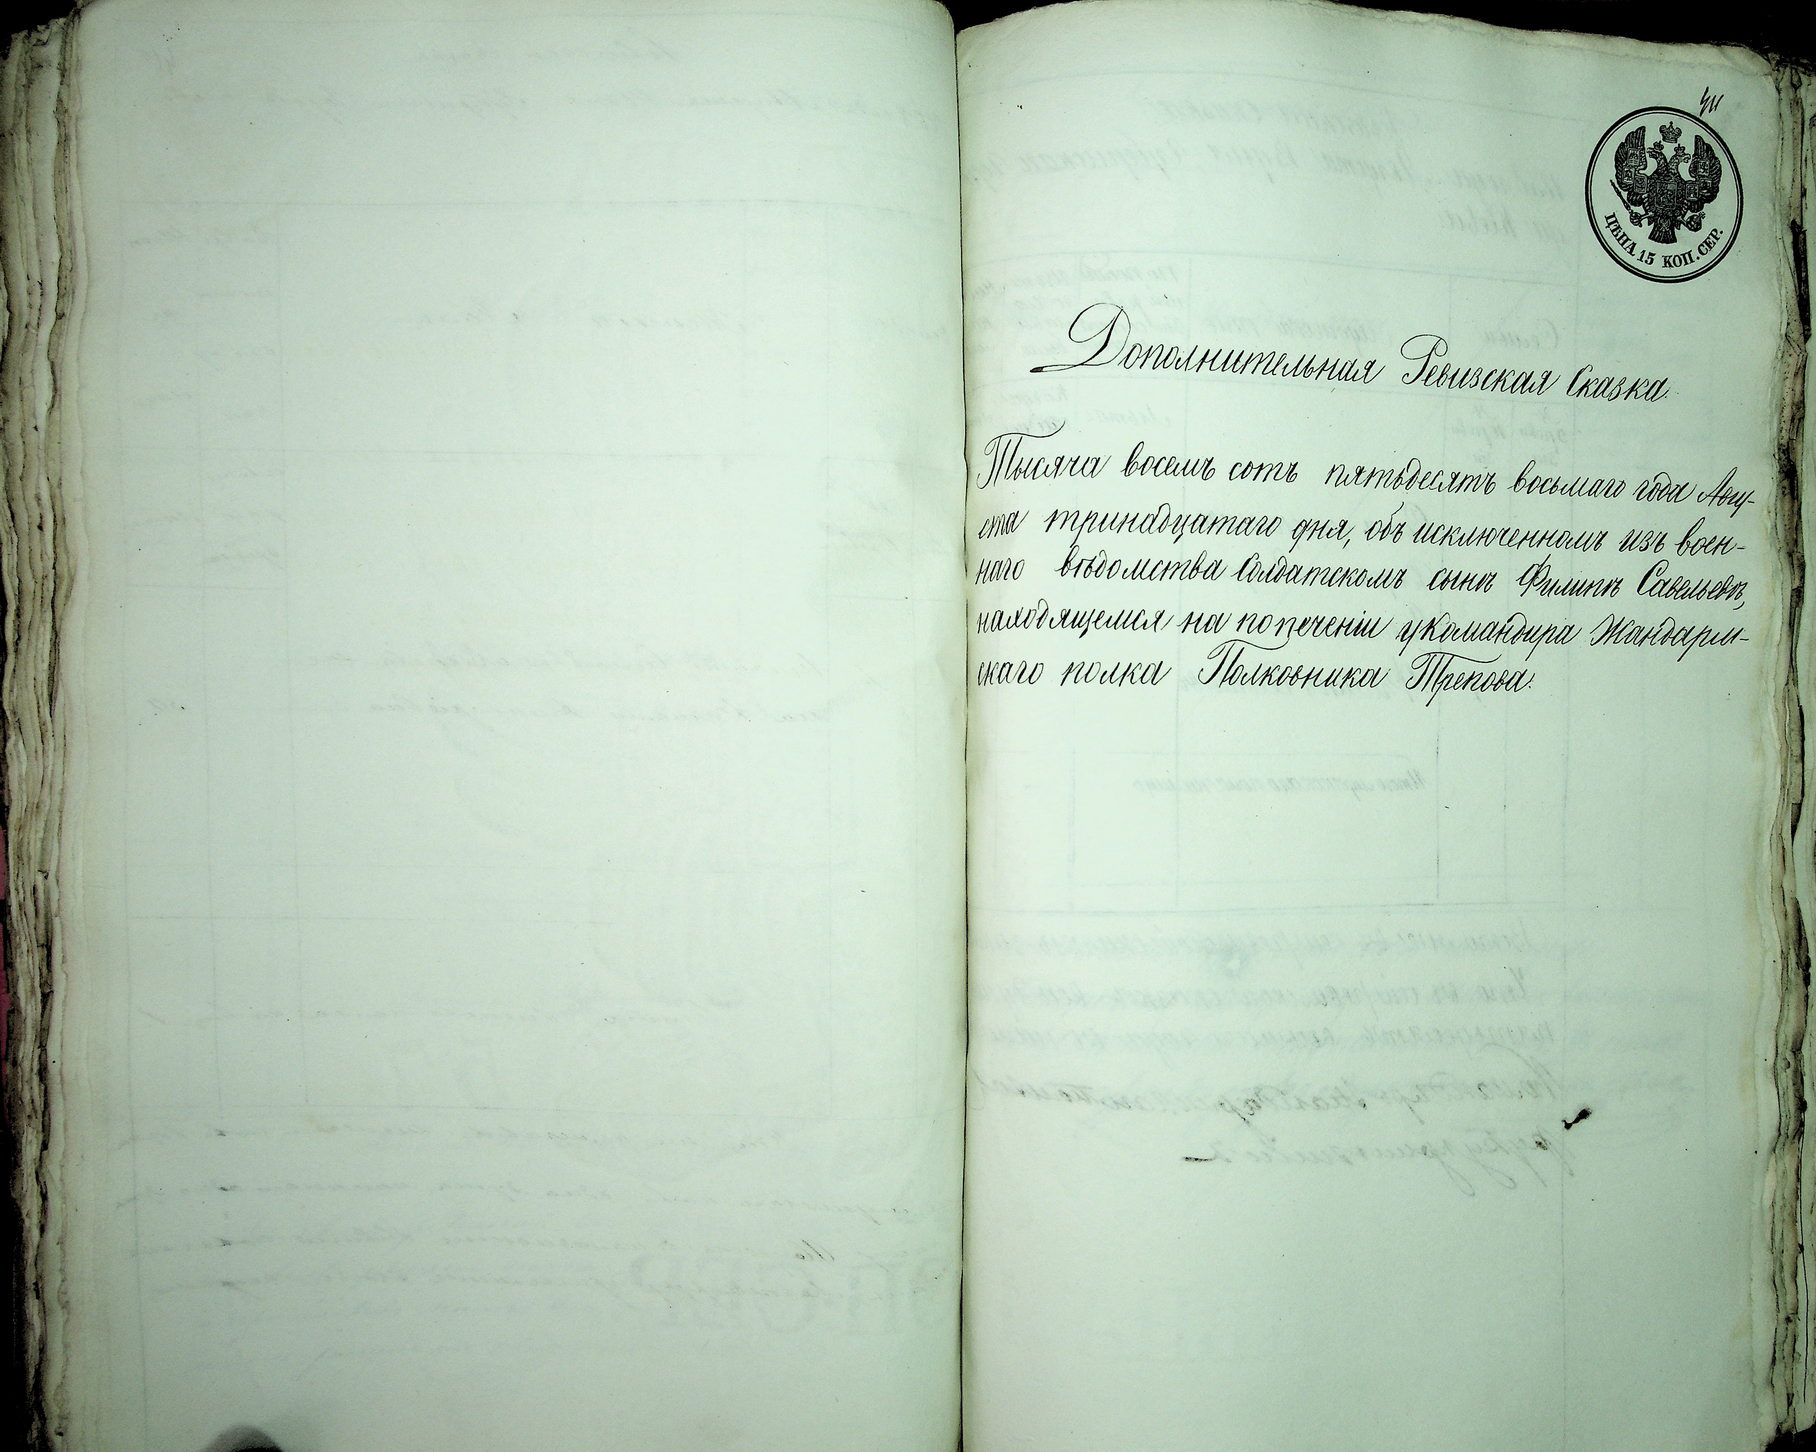 ЦѢНА 15 КОП. СЕР.
Дополнительная Ревизская Сказка.
Тысяча восемь сотъ пятьдесятъ восьмаго года Авгу-
ста тринадцатаго дня, объ исключенномъ изъ воен-
наго вѣдомства Солдатскомъ сынѣ Филипѣ Савельевѣ,
находящемся на попеченіи у Командира Жандарм-
скаго полка Полковника Трепова.